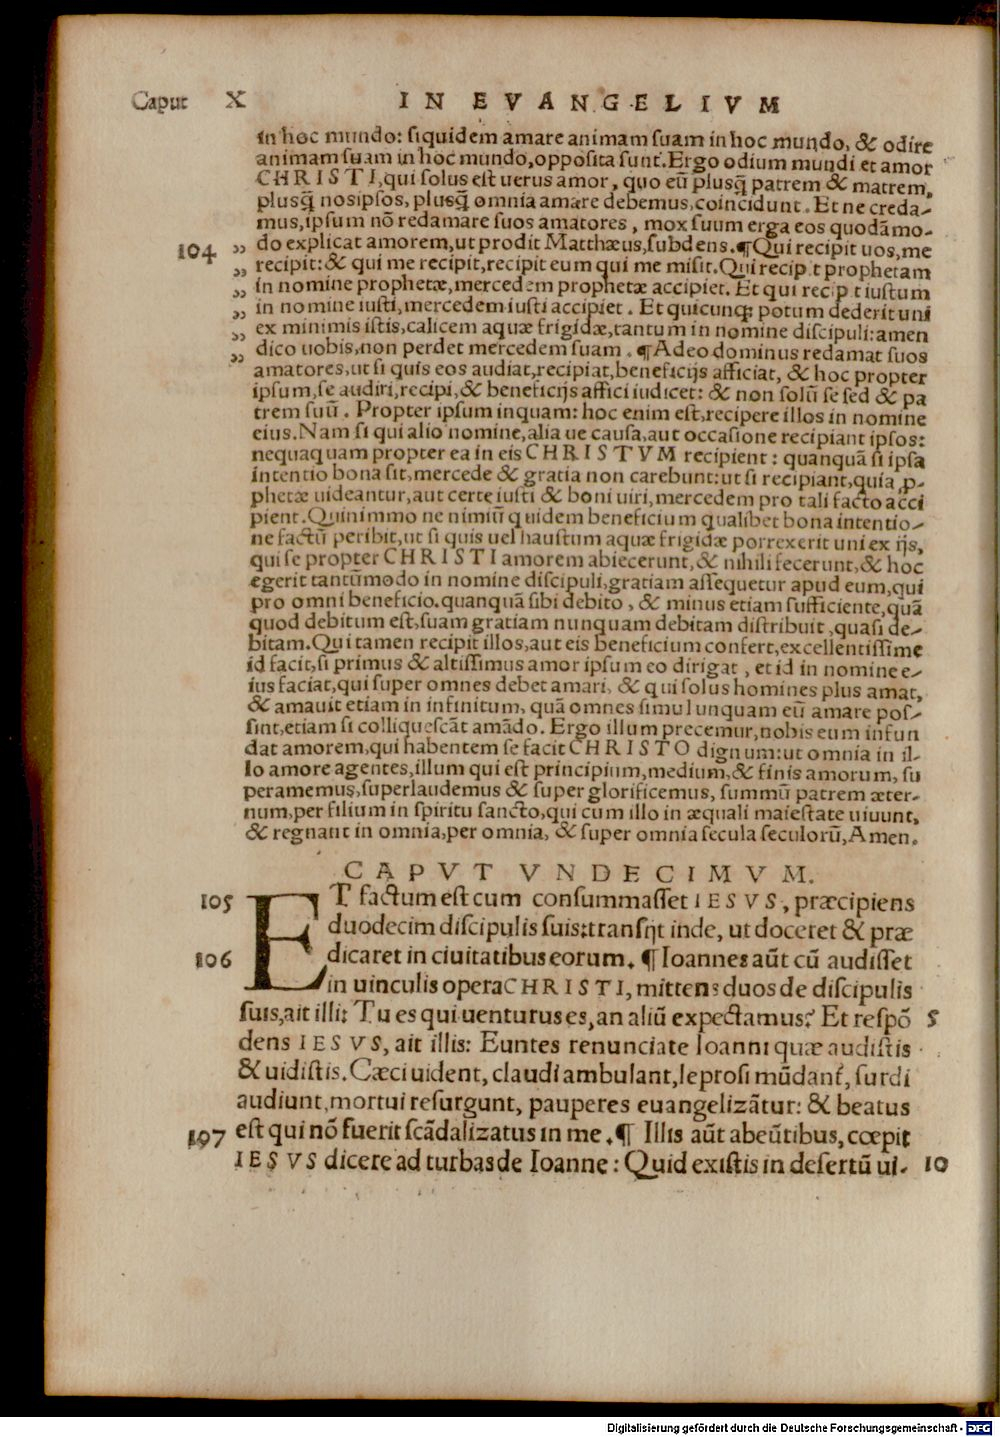 Caput X IN EVANGELIVM
in hoc mundo: siquidem amare animam suam in hoc mundo, & odire
animam suam in hoc mundo, opposita sunt. Ergo odium mundi et amor
CHRISTI, qui solus est uerus amor, quo eũ plusq̃ patrem & matrem,
plusq̃ nosipsos, plusq̃ omnia amare debemus, coincidunt. Et ne creda-
mus, ipsum nõ redamare suos amatores, mox suum erga eos quodãmo-
104 „ do explicat amorem, ut prodit Matthæus, subdens. ¶ Qui recipit uos, me
„ recipit: & qui me recipit, recipit eum qui me misit. Qui recip t prophetam
„ in nomine prophetæ, mercedem prophetæ accipiet. Et qui recip t iustum
„ in nomine iusti, mercedem iusti accipiet. Et quicunq; potum dederit uni
„ ex minimis istis, calicem aquæ frigidæ, tantum in nomine discipuli: amen
„ dico uobis, non perdet mercedem suam. ¶ Adeo dominus redamat suos
amatores, ut si quis eos audiat, recipiat, beneficijs afficiat, & hoc propter
ipsum, se audiri, recipi, & beneficijs affici iudicet: & non solũ se sed & pa
trem suũ. Propter ipsum inquam: hoc enim est, recipere illos in nomine
eius. Nam si qui alio nomine, alia ue causa, aut occasione recipiant ipsos:
nequaquam propter ea in eis CHRISTVM recipient: quanquã si ipsa
intentio bona sit, mercede & gratia non carebunt: ut si recipiant, quia ꝓ-
phetæ uideantur, aut certe iusti & boni uiri, mercedem pro tali facto acci
pient. Quinimmo ne nimiũ quidem beneficium qualibet bona intentio-
ne factũ peribit, ut si quis uel haustum aquæ frigidæ porrexerit uni ex ijs,
qui se propter CHRISTI amorem abiecerunt, & nihili fecerunt, & hoc
egerit tantũmodo in nomine discipuli, gratiam assequetur apud eum, qui
pro omni beneficio. quanquã sibi debito, & minus etiam sufficiente, quã
quod debitum est, suam gratiam nunquam debitam distribuit, quasi de-
bitam. Qui tamen recipit illos, aut eis beneficium confert, excellentissime
id facit, si primus & altissimus amor ipsum eo dirigat, et id in nomine e-
ius faciat, qui super omnes debet amari, & qui solus homines plus amat,
& amauit etiam in infinitum, quã omnes simul unquam eũ amare pos-
sint, etiam si colliquescãt amãdo. Ergo illum precemur, nobis eum infun
dat amorem, qui habentem se facit CHRISTO dignum: ut omnia in il-
lo amore agentes, illum qui est principium, medium, & finis amorum, su
peramemus, superlaudemus & super glorificemus, summũ patrem æter-
num, per filium in spiritu sancto, qui cum illo in æquali maiestate uiuunt,
& regnant in omnia, per omnia, & super omnia secula seculorũ, Amen.
CAPVT VNDECIMVM.
105 ET factum est cum consummasset IESVS, præcipiens
duodecim discipulis suis: transijt inde, ut doceret & præ
106 dicaret in ciuitatibus eorum. ¶ Ioannes aũt cũ audisset
in uinculis opera CHRISTI, mittens duos de discipulis
suis, ait illi: Tu es qui uenturus es, an aliũ expectamus? Et respõ 5
dens IESVS, ait illis: Euntes renunciate Ioanni quæ audistis
& uidistis. Cæci uident, claudi ambulant, leprosi mũdant̃, surdi
audiunt, mortui resurgunt, pauperes euangelizãtur: & beatus
107 est qui nõ fuerit scãdalizatus in me. ¶ Illis aũt abeũtibus, cœpit
IESVS dicere ad turbas de Ioanne: Quid existis in desertũ ui- 10
Digitalisierung gefördert durch die Deutsche Forschungsgemeinschaft - DFG